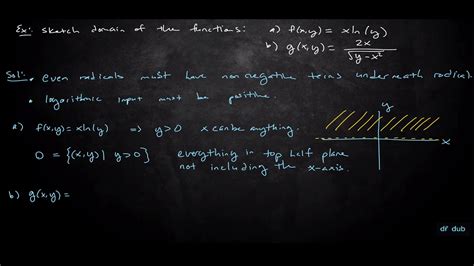 Ex: Sketch domain of the functions: a) f(x,y) = x ln(y)
b) g(x,y) = 2x / √y-x²
Sol: • even radicals must have nonnegative terms underneath radical.
• logarithmic input must be positive.
a) f(x,y) = x ln(y) ⇒ y>0 x can be anything.
D = {(x,y) | y>0} everything in top half plane
not including the x-axis.
y
x
b) g(x,y) =
dr dub